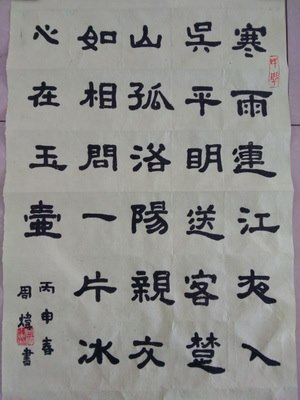 寒雨連江夜入
吳平明送客楚
山孤洛陽親友
如相問一片冰
心在玉壺
丙申春
周煒書